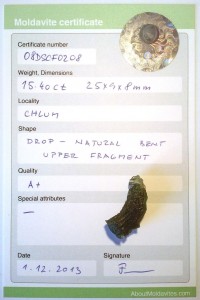 Moldavite certificate
Certificate number
08DSCF0208
Weight, Dimensions
15.40ct 25x9x8mm
Locality
CHLUM
Shape
DROP - NATURAL BENT
UPPER FRAGMENT
Quality
A+
Special attributes
—
Date
Signature
1.12.2013
AboutMoldavites.com